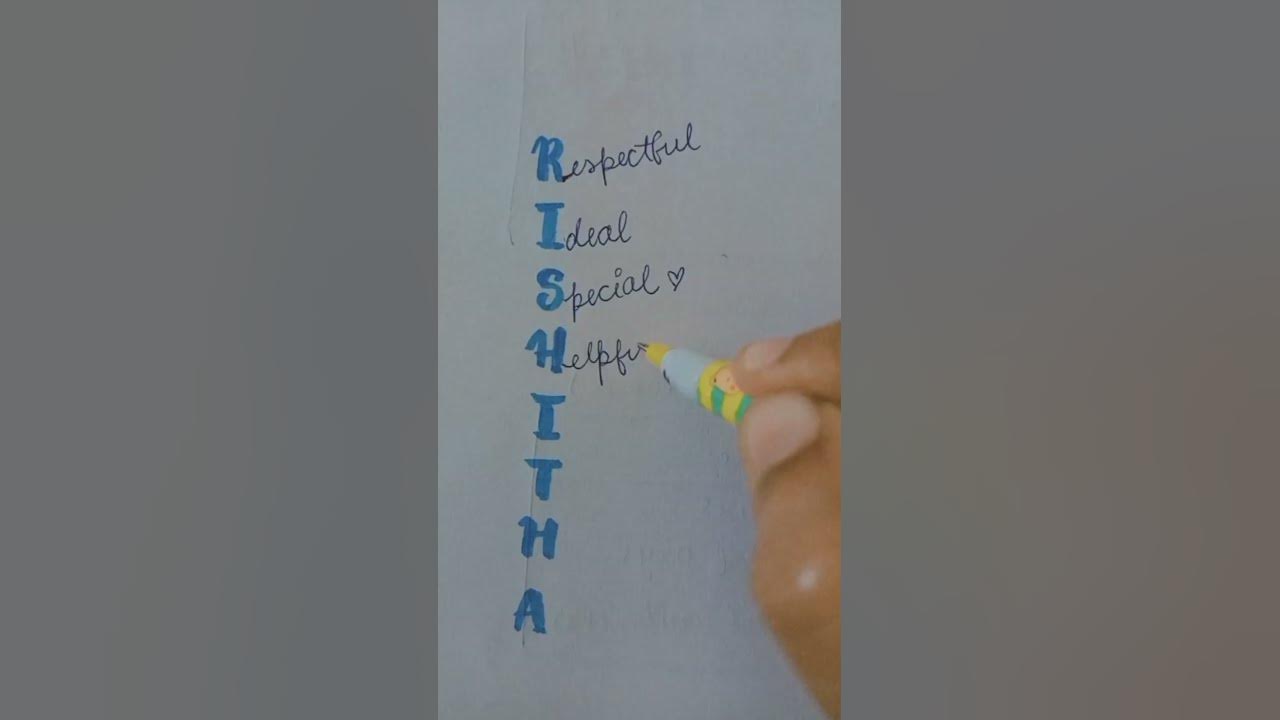 Respectful
Ideal
Special ♡
Helpfu
I
T
H
A